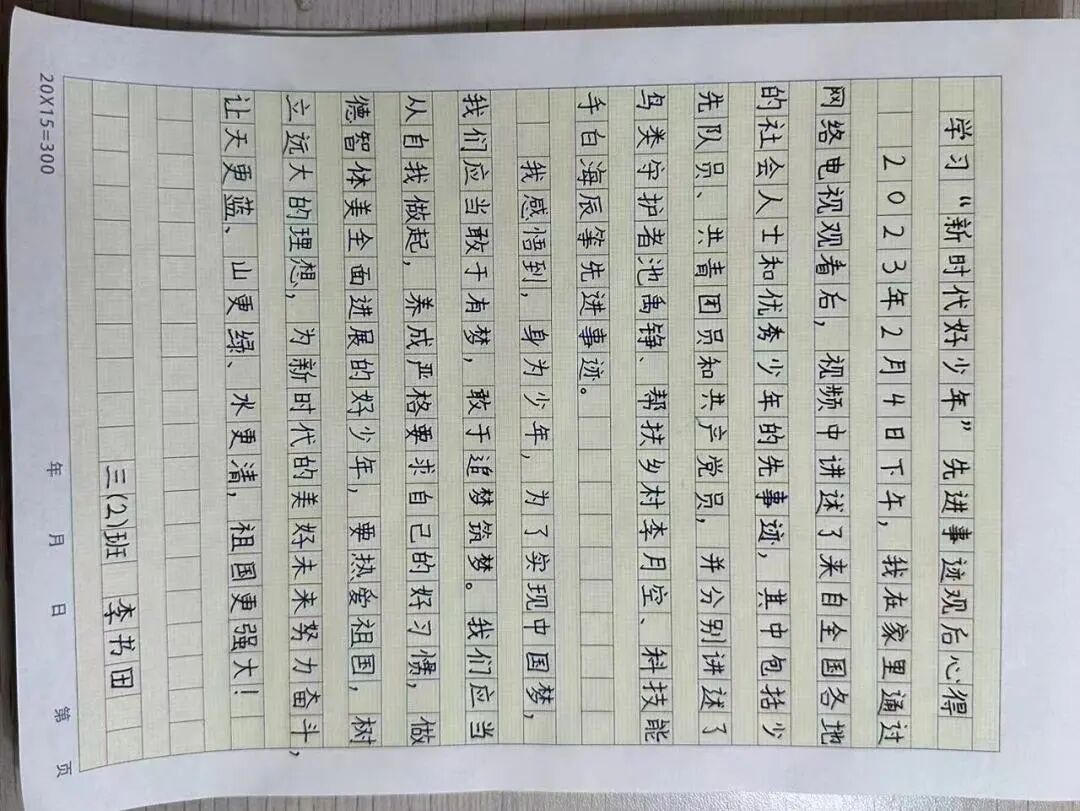 学习“新时代好少年”先进事迹观后心得
2023年2月4日下午，我在家里通过
网络电视观看后，视频中讲述了来自全国各地
的社会人士和优秀少年的先事迹，其中包括少
先队员、共青团员和共产党员，并分别讲述了
鸟类守护者池禹铮、帮扶乡村李月空、科技能
手白海辰等先进事迹。
我感悟到，身为少年，为了实现中国梦，
我们应当敢于有梦，敢于追梦筑梦。我们应当
从自我做起，养成严格要求自己的好习惯，做
德智体美全面进展的好少年，要热爱祖国，树
立远大的理想，为新时代的美好未来努力奋斗，
让天更蓝、山更绿、水更清，祖国更强大！
三(2)班 李书田
20X15=300 年 月 日 第 页